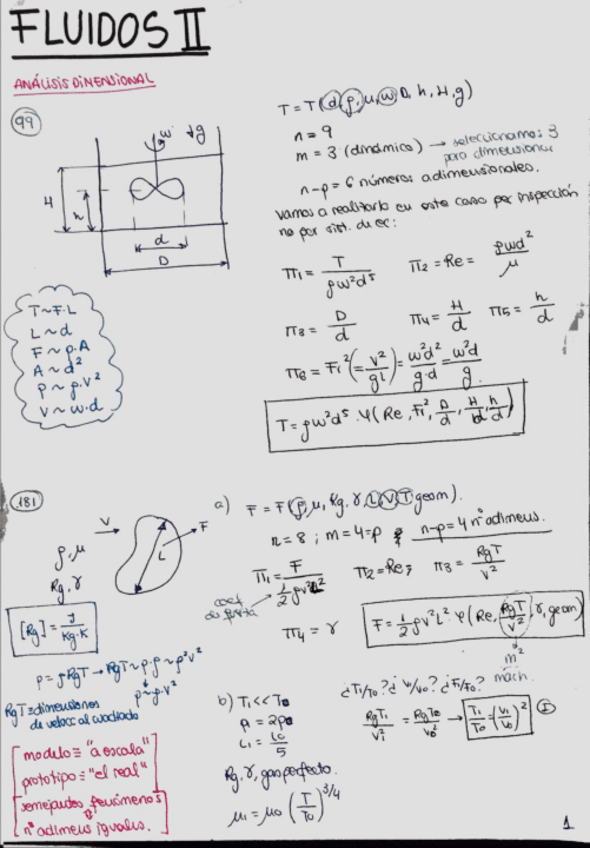 FLUIDOS II
ANÁLISIS DIMENSIONAL
99
w ↓g
H
h
d
D
T~F·L
L~d
F~p·A
A~d²
p~ρ·v²
v~w·d
T=T(d,ρ,μ,w,D,h,H,g)
n=9
m=3 (dinámico) → seleccionamos 3
para dimensionar
n-p=6 números adimensionales.
vamos a realizarlo en este caso por inspección
no por sist. de ec:
Π1= T/ρw²d⁵ Π2=Re= ρwd²/μ
Π3= D/d Π4= H/d Π5= h/d
Π6=Fr²(=v²/gL)=w²d²/g·d=w²d/g
T=ρw²d⁵·Ψ(Re,Fr²,D/d,H/d,h/d)
181
V
L
F
ρ,μ
Rg,γ
[Rg]=J/Kg·K
p=ρRgT→RgT~p·ρ~ρ²v²
p~ρ·v²
RgT≡dimensiones
de veloc al cuadrado
modelo≡"a escala"
prototipo≡"el real"
semejanza fenómenos
⇕
nº adimens iguales.
a) F=F(ρ,μ,Rg,γ,L,V,T,geom).
n=8; m=4=p n-p=4 nº adimens.
Π1= F/½ρv²L² Π2=Re; Π3= RgT/v²
coef
de fuerza
Π4=γ
F=½ρv²L²Ψ(Re,RgT/v²,γ,geom)
m²
mach.
b) T1<<T0
ρ1=2ρ0
L1=L0/5
Rg,γ,gas perfecto.
μ1=μ0(T/T0)^3/4
¿T1/T0? ¿V1/V0? ¿F1/F0?
RgT1/V1²=RgT0/V0²→T1/T0=(V1/V0)² I
1